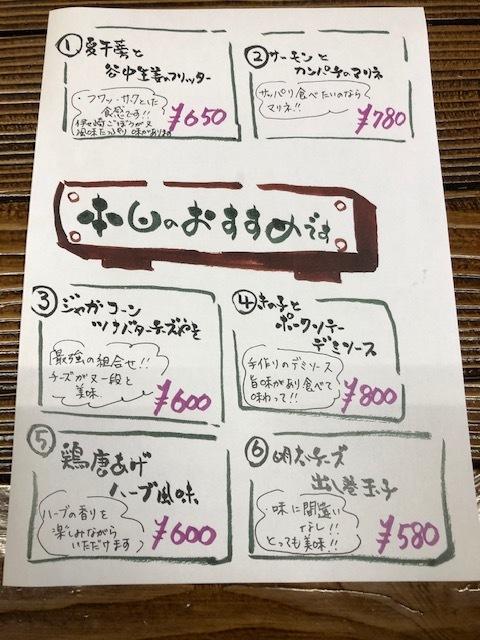 ① 夏牛蒡と
谷中生姜のフリッター
・フワッ・サクとした
食感です!!
伊勢崎ごぼうが又
風味たっぷり 味があります
¥650
② サーモンと
カンパチのマリネ
サッパリ食べたいのなら
マリネ!!
¥780
本日のおすすめです
③ ジャガコーン
ツナバターチーズやき
最強の組合せ!!
チーズが又一段と
美味
¥600
④ きの子と
ポークソテー
デミソース
手作りのデミソース
旨味があり食べて
味わって!!
¥800
⑤ 鶏唐あげ
ハーブ風味
ハーブの香りを
楽しみながら
いただけます
¥600
⑥ 明太チーズ
出し巻玉子
・味に間違い
なし!!
とっても美味!!
¥580